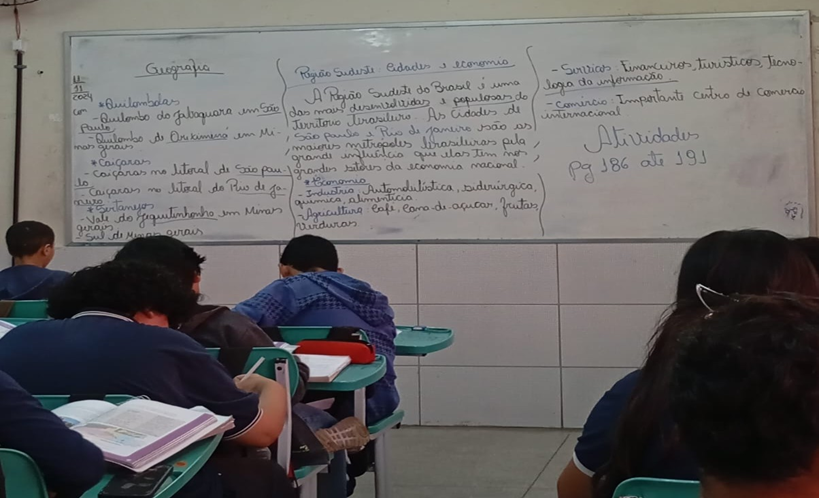 Geografia
11
11
2024
* Quilombolas
- Quilombo do Jabaquara em São
Paulo
- Quilombo de Oriximiná em Mi-
nas gerais
* Caiçaras
- Caiçaras no litoral de São pau-
lo
- Caiçaras no litoral do Rio de ja-
neiro
* Sertanejos
- Vale do Jequitinhonha em Minas
gerais
- Sul de Minas gerais
Região Sudeste: Cidades e economia
A Região Sudeste do Brasil é uma
das mais desenvolvidas e populosas do
território brasileiro. As cidades de
São paulo e Rio de janeiro são as
maiores metrópoles brasileiras pela
grande influência que elas tem nos
grandes setores da economia nacional.
* Economia
- Industria: Automobilística, siderúrgica,
química, alimentícia
- Agricultura: Café, Cana-de-açucar, frutas,
Verduras
- Serviços: Financeiros, turísticos, tecno-
logia da informação.
- Comercio: Importante centro de Comercio
internacional
Atividades
pg 186 até 191